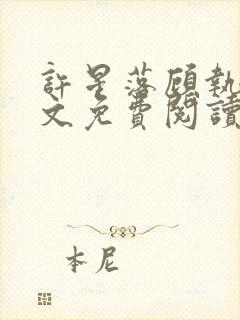 許星落顧執
文免費閱讀
本尼